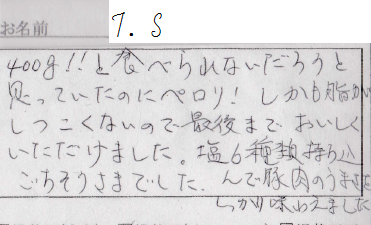 お名前
T. S
400g!!と食べられないだろうと
思っていたのにペロリ! しかも脂が
しつこくないので最後までおいしく
いただけました。塩6種類持ち込
ごちそうさまでした. んで豚肉のうまさを
しっかり味わえました